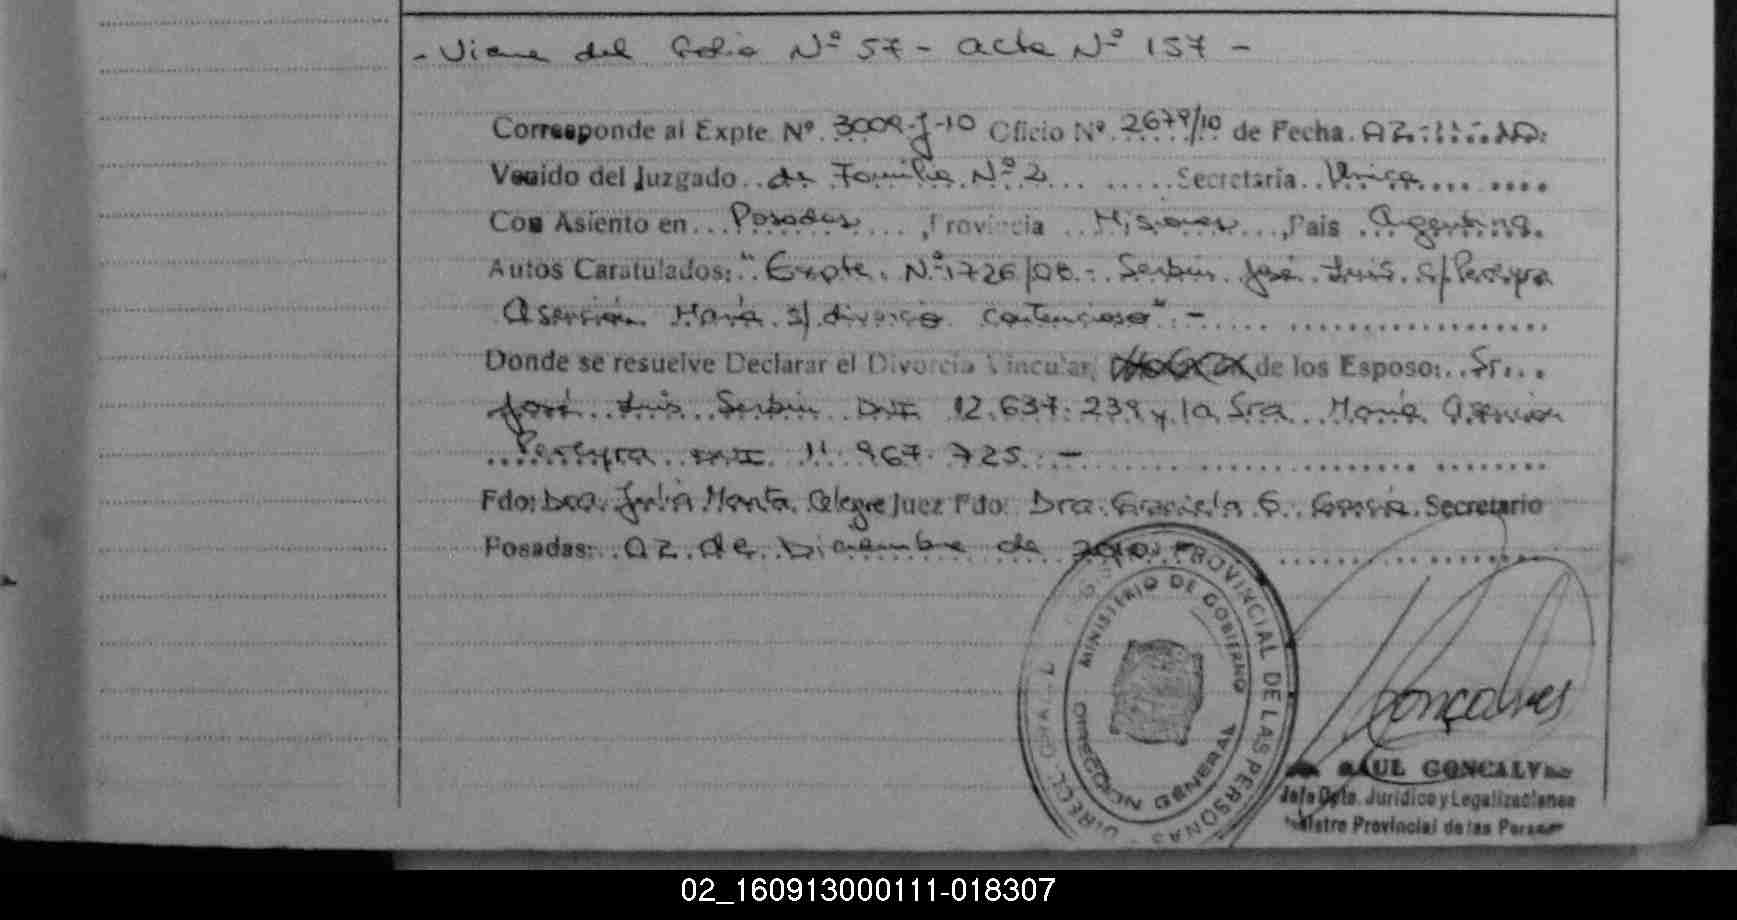 - Viene del Folio Nº 57 - acta Nº 157 -
Corresponde al Expte. Nº. 3009-J-10 Oficio Nº. 2679/10 de Fecha. 02-12-10.
Venido del Juzgado de Familia Nº 2 Secretaria Unica
Con Asiento en Posadas, Provincia Misiones, Pais Argentina.
Autos Caratulados: "Expte. Nº 1726/08 - Serbin José Luis c/ Pereyra
Asención María s/ divorcio contencioso" -
Donde se resuelve Declarar el Divorcio Vincular, de los Esposo: Sr.
José Luis Serbin DNI 12.637.239 y la Sra María Asención
Pereyra DNI 11.967.725. -
Fdo: Dra. Julia Marta Alegre Juez Fdo: Dra. Graciela G. García Secretario
Posadas: 02 de Diciembre de 2010. -
DIRECC. GRAL. PROVINCIAL DE LAS PERSONAS
MINISTERIO DE GOBIERNO
DIRECCION GENERAL
Gonçalves
RAUL GONCALVES
Jefe Dpto. Juridico y Legalizaciones
Registro Provincial de las Personas
02_160913000111-018307